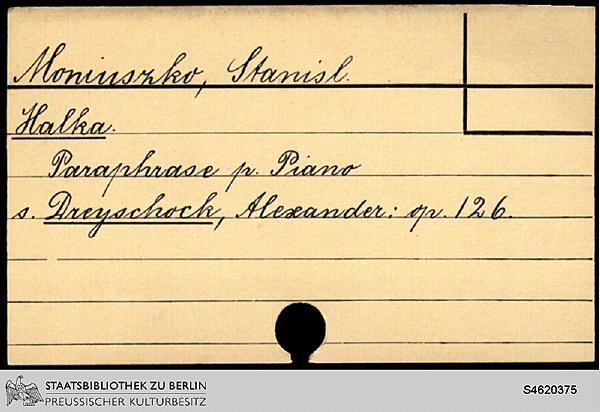 Moniuszko, Stanisl.
Halka.
Paraphrase p. Piano
s. Dreyschock, Alexander: op. 126.
STAATSBIBLIOTHEK ZU BERLIN
PREUSSISCHER KULTURBESITZ
S4620375